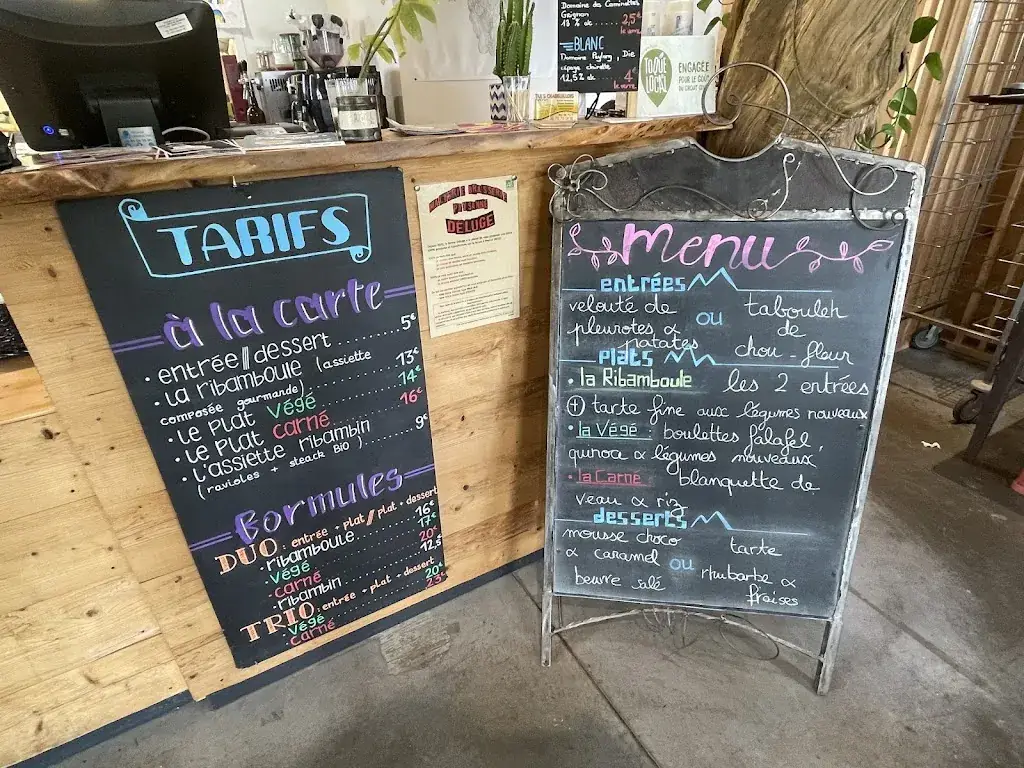 TARIFS
à la carte
• entrée // dessert ........ 5€
• La ribamboule (assiette 13€
composée gourmande)
• Le PLAT végé 14€
• Le PLAT carné 16€
• L'assiette ribambin 9€
(ravioles + steack BIO)
Formules
DUO : entrée + plat // plat + dessert
• ribamboule 16€
• végé 17€
• carné 20€
• ribambin 12,5€
TRIO : entrée + plat + dessert
• végé 20€
• carné 23€
DELUGE
Domaine des
Grignan
13% alc ... 2,5€
le verre
BLANC
Domaine Peylong, Die
cépage clairette
12,5% alc 4€
le verre
TOQUÉ
DU
LOCAL
ENGAGÉE
POUR LE GOÛT
DU CIRCUIT COURT
menu
entrées
velouté de
pleurotes &
patates
ou
tabouleh
de
chou-fleur
plats
• la Ribamboule les 2 entrées
+ tarte fine aux légumes nouveaux
• la Végé : boulettes falafel,
quinoa & légumes nouveaux
• la Carné blanquette de
veau & riz
desserts
mousse choco
& caramel
beurre salé
ou
tarte
rhubarbe &
fraises